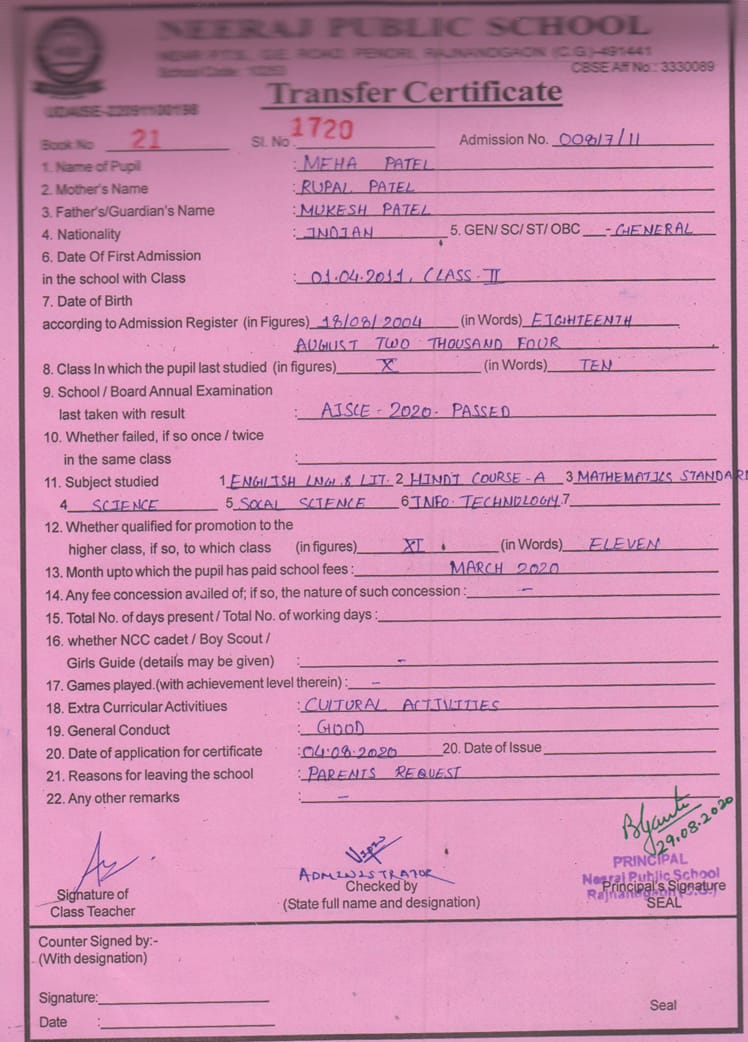 NEERAJ PUBLIC SCHOOL
NEAR P.T.S., G.E. ROAD, PENDRI, RAJNANDGAON (C.G.)-491441
School Code : 10253 CBSE Aff No.: 3330089
Transfer Certificate
UDAISE-22091100198
Book No 21 Sl. No 1720 Admission No. 00817/11
1. Name of Pupil : MEHA PATEL
2. Mother's Name : RUPAL PATEL
3. Father's/Guardian's Name : MUKESH PATEL
4. Nationality : INDIAN 5. GEN/ SC/ ST/ OBC - GENERAL
6. Date Of First Admission
in the school with Class : 01.04.2011, CLASS - II
7. Date of Birth
according to Admission Register (in Figures) 18/08/2004 (in Words) EIGHTEENTH
AUGUST TWO THOUSAND FOUR
8. Class In which the pupil last studied (in figures) X (in Words) TEN
9. School / Board Annual Examination
last taken with result : AISCE - 2020 - PASSED
10. Whether failed, if so once / twice
in the same class :
11. Subject studied 1 ENGLISH LNG. & LIT. 2 HINDI COURSE - A 3 MATHEMATICS STANDARD
4 SCIENCE 5 SOCAL SCIENCE 6 INFO. TECHNOLOGY 7
12. Whether qualified for promotion to the
higher class, if so, to which class (in figures) XI (in Words) ELEVEN
13. Month upto which the pupil has paid school fees : MARCH 2020
14. Any fee concession availed of; if so, the nature of such concession : -
15. Total No. of days present / Total No. of working days :
16. whether NCC cadet / Boy Scout /
Girls Guide (details may be given) : -
17. Games played.(with achievement level therein) : -
18. Extra Curricular Activitiues : CULTURAL ACTIVITIES
19. General Conduct : GOOD
20. Date of application for certificate : 04.08.2020 20. Date of Issue
21. Reasons for leaving the school : PARENTS REQUEST
22. Any other remarks : -
29.08.2020
PRINCIPAL
Neeraj Public School
Rajnandgaon (C.G.)
ADMINISTRATOR
Signature of Checked by Principal's Signature
Class Teacher (State full name and designation) SEAL
Counter Signed by:-
(With designation)
Signature:
Seal
Date :